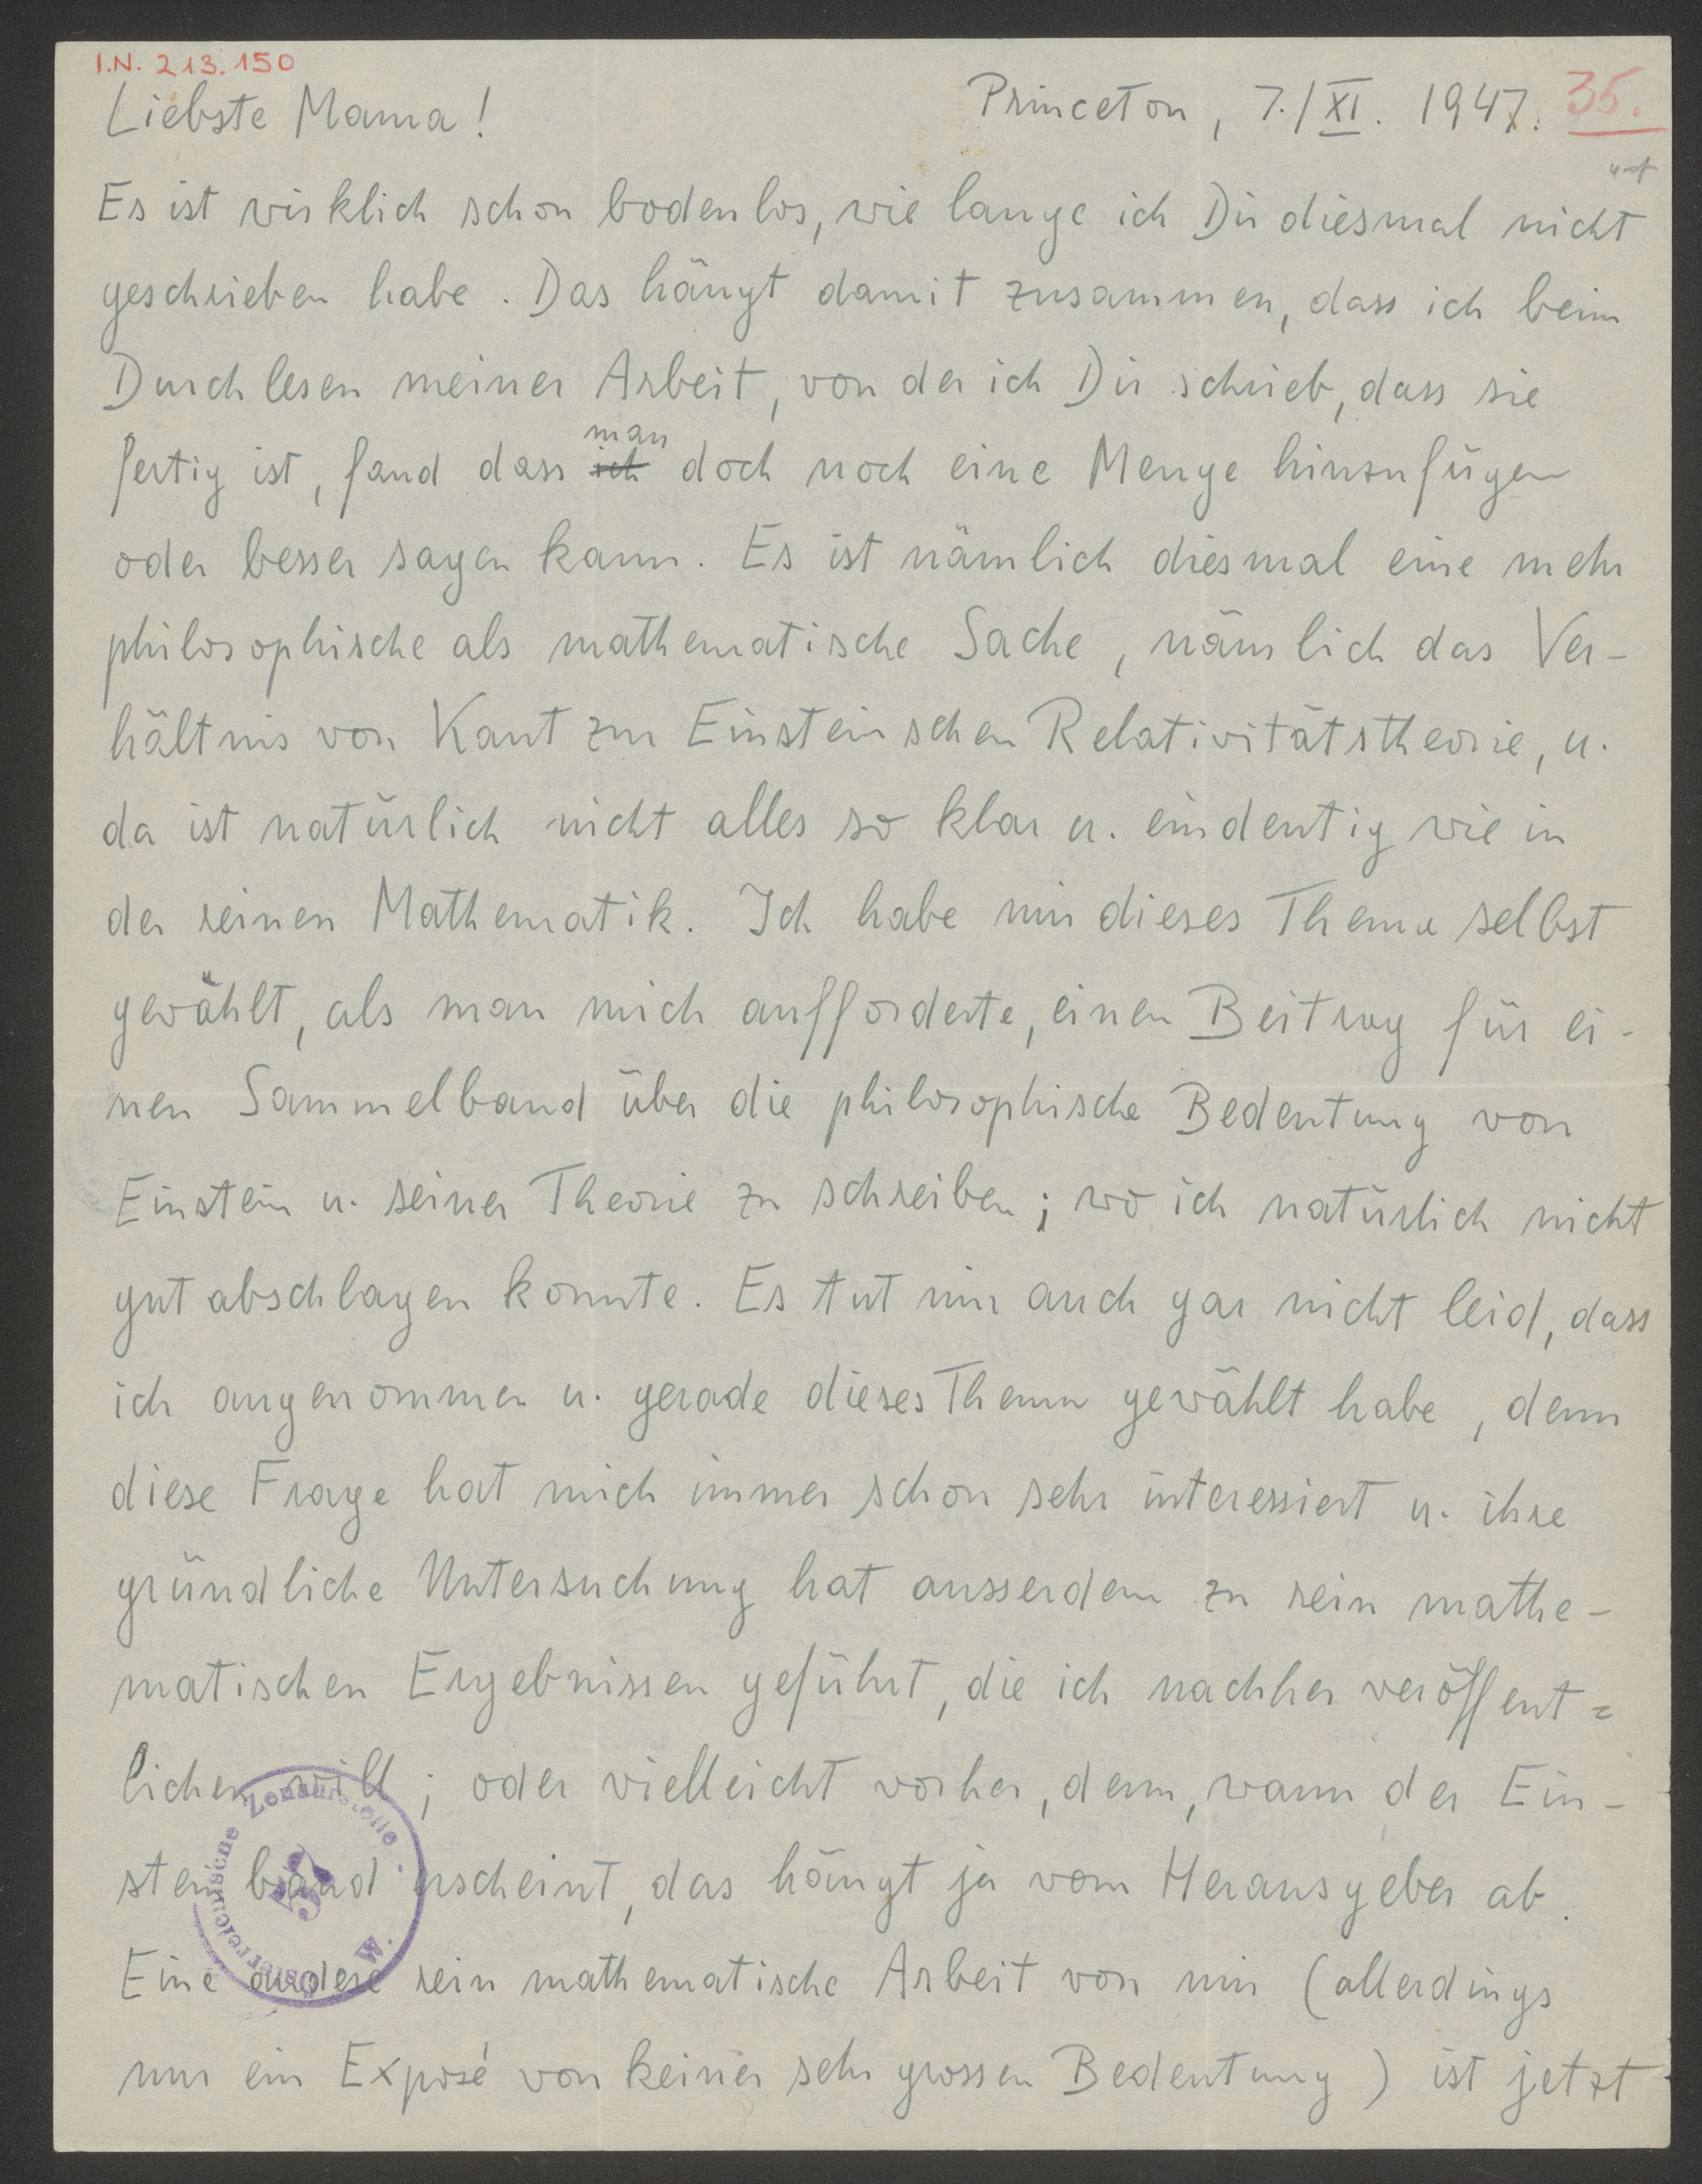 I.N. 213.150
Liebste Mama! Princeton, 7./XI. 1947. 35.
Es ist wirklich schon bodenlos, wie lange ich Dir diesmal nicht
geschrieben habe. Das hängt damit zusammen, dass ich beim
Durchlesen meiner Arbeit, von der ich Dir schrieb, dass sie
fertig ist, fand dass ich man doch noch eine Menge hinzufügen
oder besser sagen kann. Es ist nämlich diesmal eine mehr
philosophische als mathematische Sache, nämlich das Ver-
hältnis von Kant zur Einsteinschen Relativitätstheorie, u.
da ist natürlich nicht alles so klar u. eindeutig wie in
der reinen Mathematik. Ich habe mir dieses Thema selbst
gewählt, als man mich aufforderte, einen Beitrag für ei-
nen Sammelband über die philosophische Bedeutung von
Einstein u. seiner Theorie zu schreiben; wo ich natürlich nicht
gut abschlagen konnte. Es tut mir auch gar nicht leid, dass
ich angenommen u. gerade dieses Thema gewählt habe, denn
diese Frage hat mich immer schon sehr interessiert u. ihre
gründliche Untersuchung hat ausserdem zu rein mathe-
matischen Ergebnissen geführt, die ich nachher veröffent=
lichen will; oder vielleicht vorher, denn, wann der Ein-
steinband erscheint, das hängt ja vom Herausgeber ab.
Eine andere rein mathematische Arbeit von mir (allerdings
nur ein Exposé von keiner sehr grossen Bedeutung) ist jetzt
Österreichische Zensurstelle W.